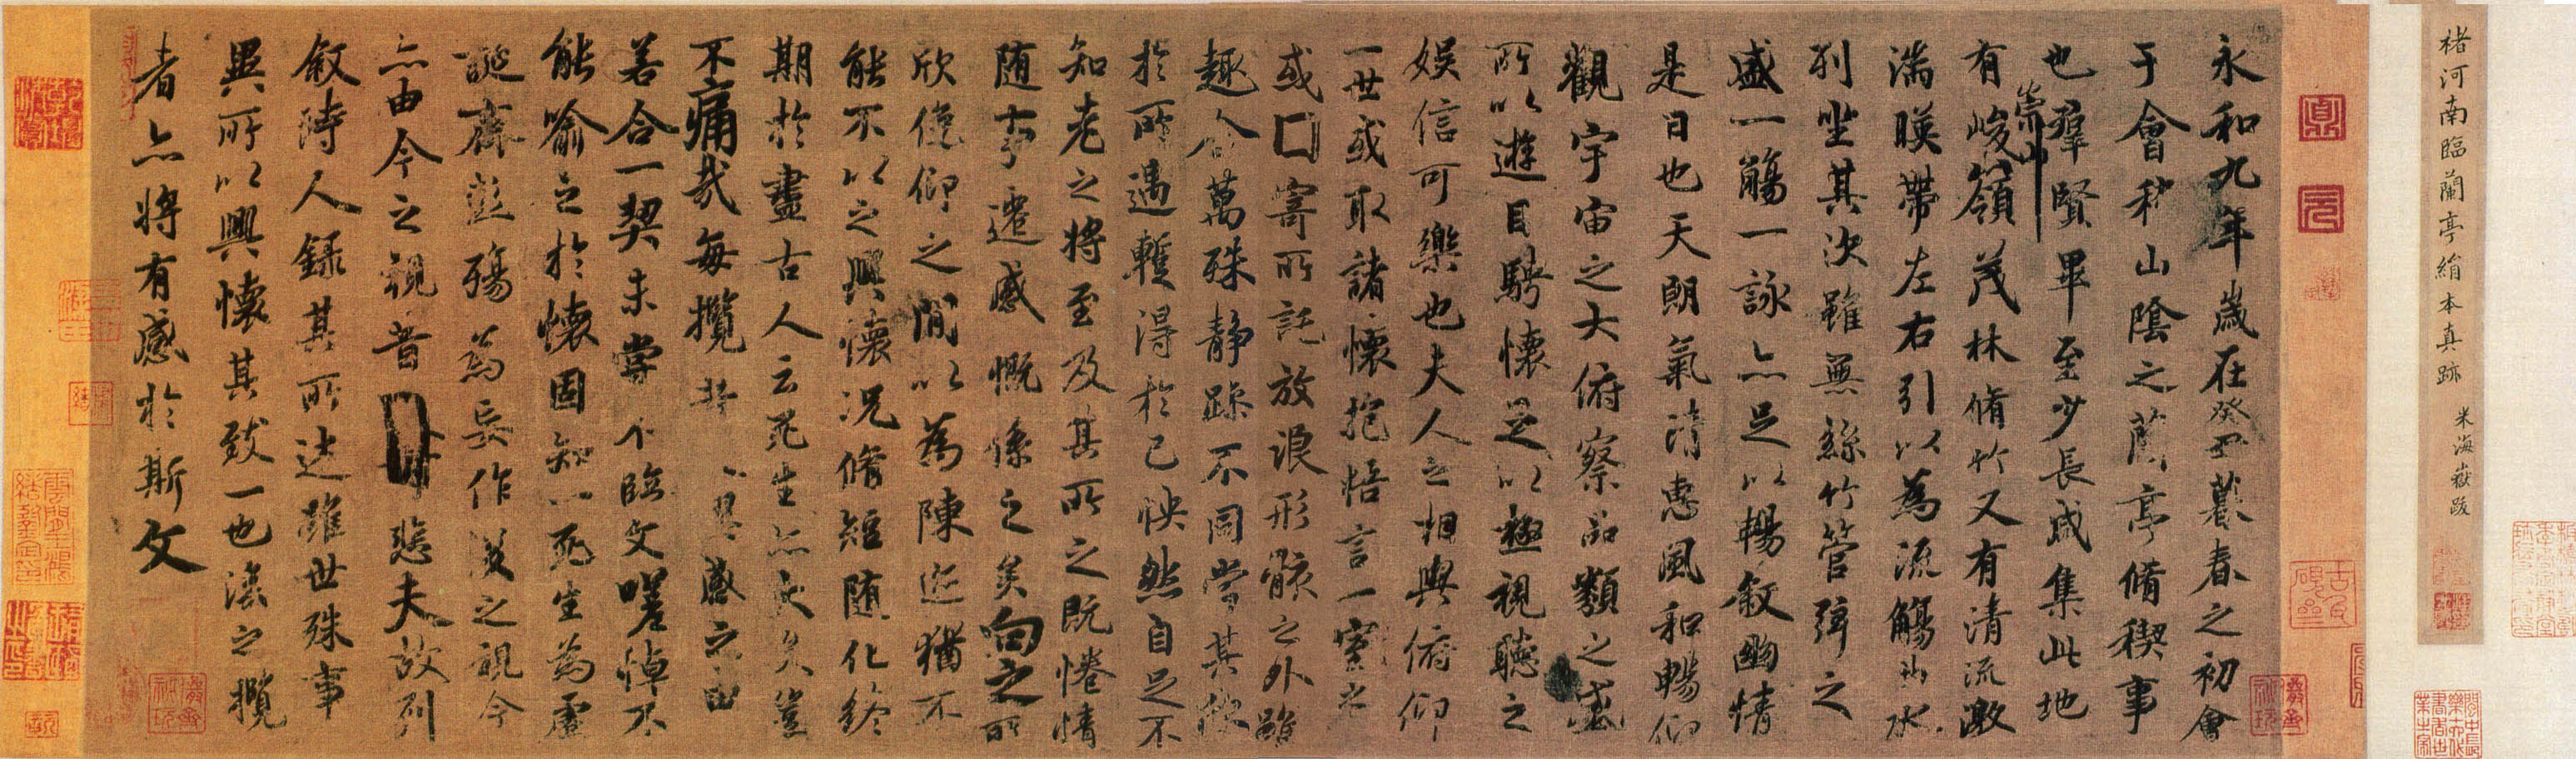 褚河南臨蘭亭絹本真跡 米海嶽跋
永和九年歲在癸丑暮春之初會
于會稽山陰之蘭亭脩稧事
也羣賢畢至少長咸集此地
有崇山峻嶺茂林脩竹又有清流激
湍暎帶左右引以為流觴曲水
列坐其次雖無絲竹管弦之
盛一觴一詠亦足以暢敘幽情
是日也天朗氣清惠風和暢仰
觀宇宙之大俯察品類之盛
所以遊目騁懷足以極視聽之
娛信可樂也夫人之相與俯仰
一世或取諸懷抱悟言一室之
或寄所託放浪形骸之外雖
趣舍萬殊靜躁不同當其欣
於所遇暫得於己怏然自足不
知老之將至及其所之既惓情
随事遷感慨係之矣向之所
欣俛仰之閒以為陳迹猶不
能不以之興懷況脩短随化終
期於盡古人云死生亦大矣豈
不痛哉每攬昔興感之由
若合一契未嘗不臨文嗟悼不
能喻之於懷固知一死生為虛
誕齊彭殤為妄作後之視今
亦由今之視昔悲夫故列
敘時人錄其所述雖世殊事
異所以興懷其致一也後之攬
者亦將有感於斯文